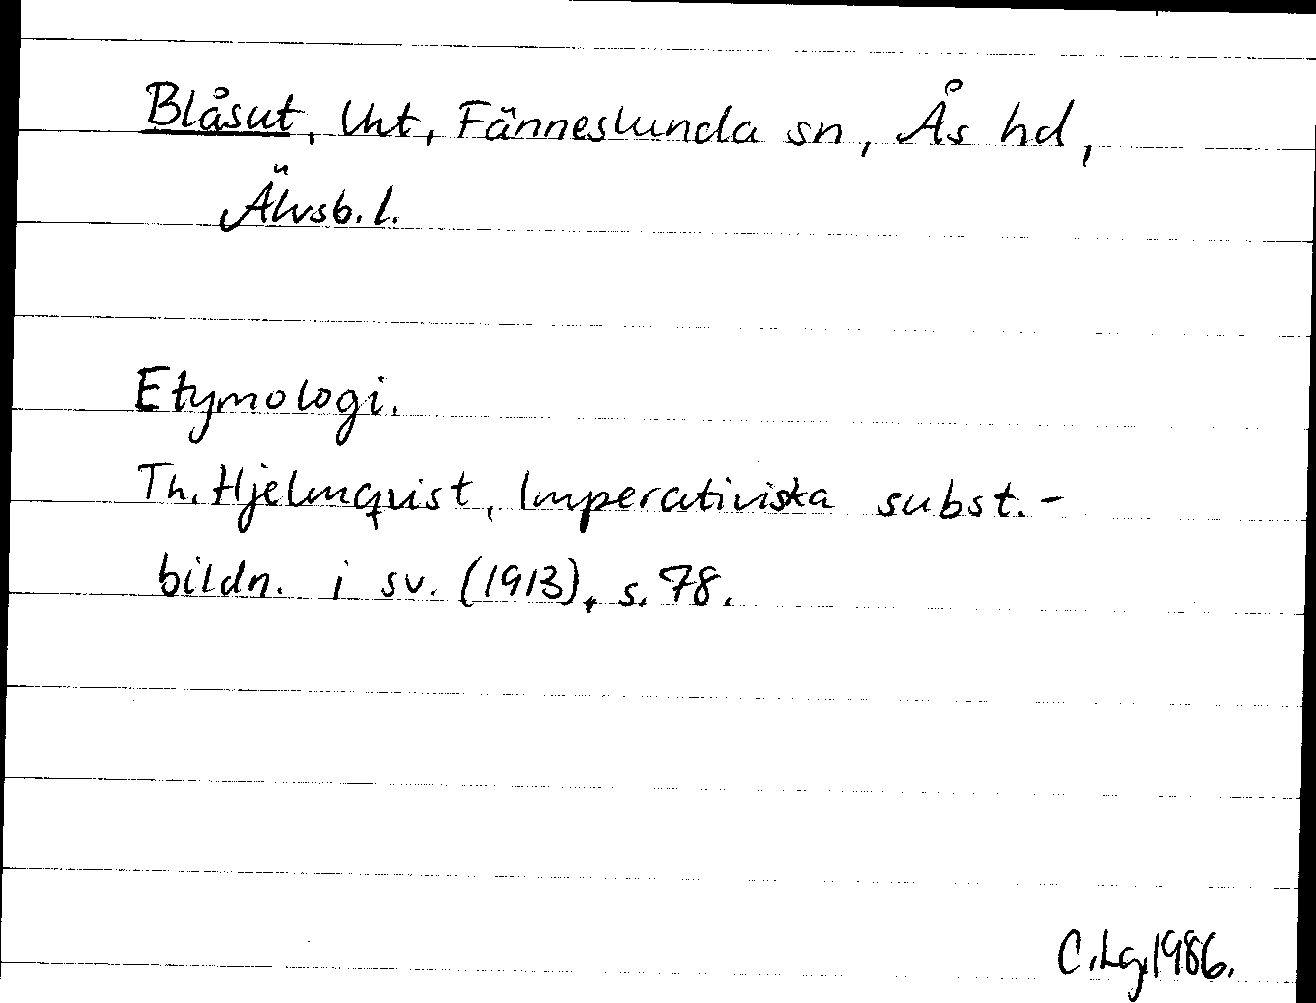 Blåsut, lht, Fänneslunda sn, Ås hd,
Älvsb. l.
Etymologi.
Th. Hjelmqvist, Imperativiska subst.-
bildn. i sv. (1913), s. 78.
C. Lg. 1986.